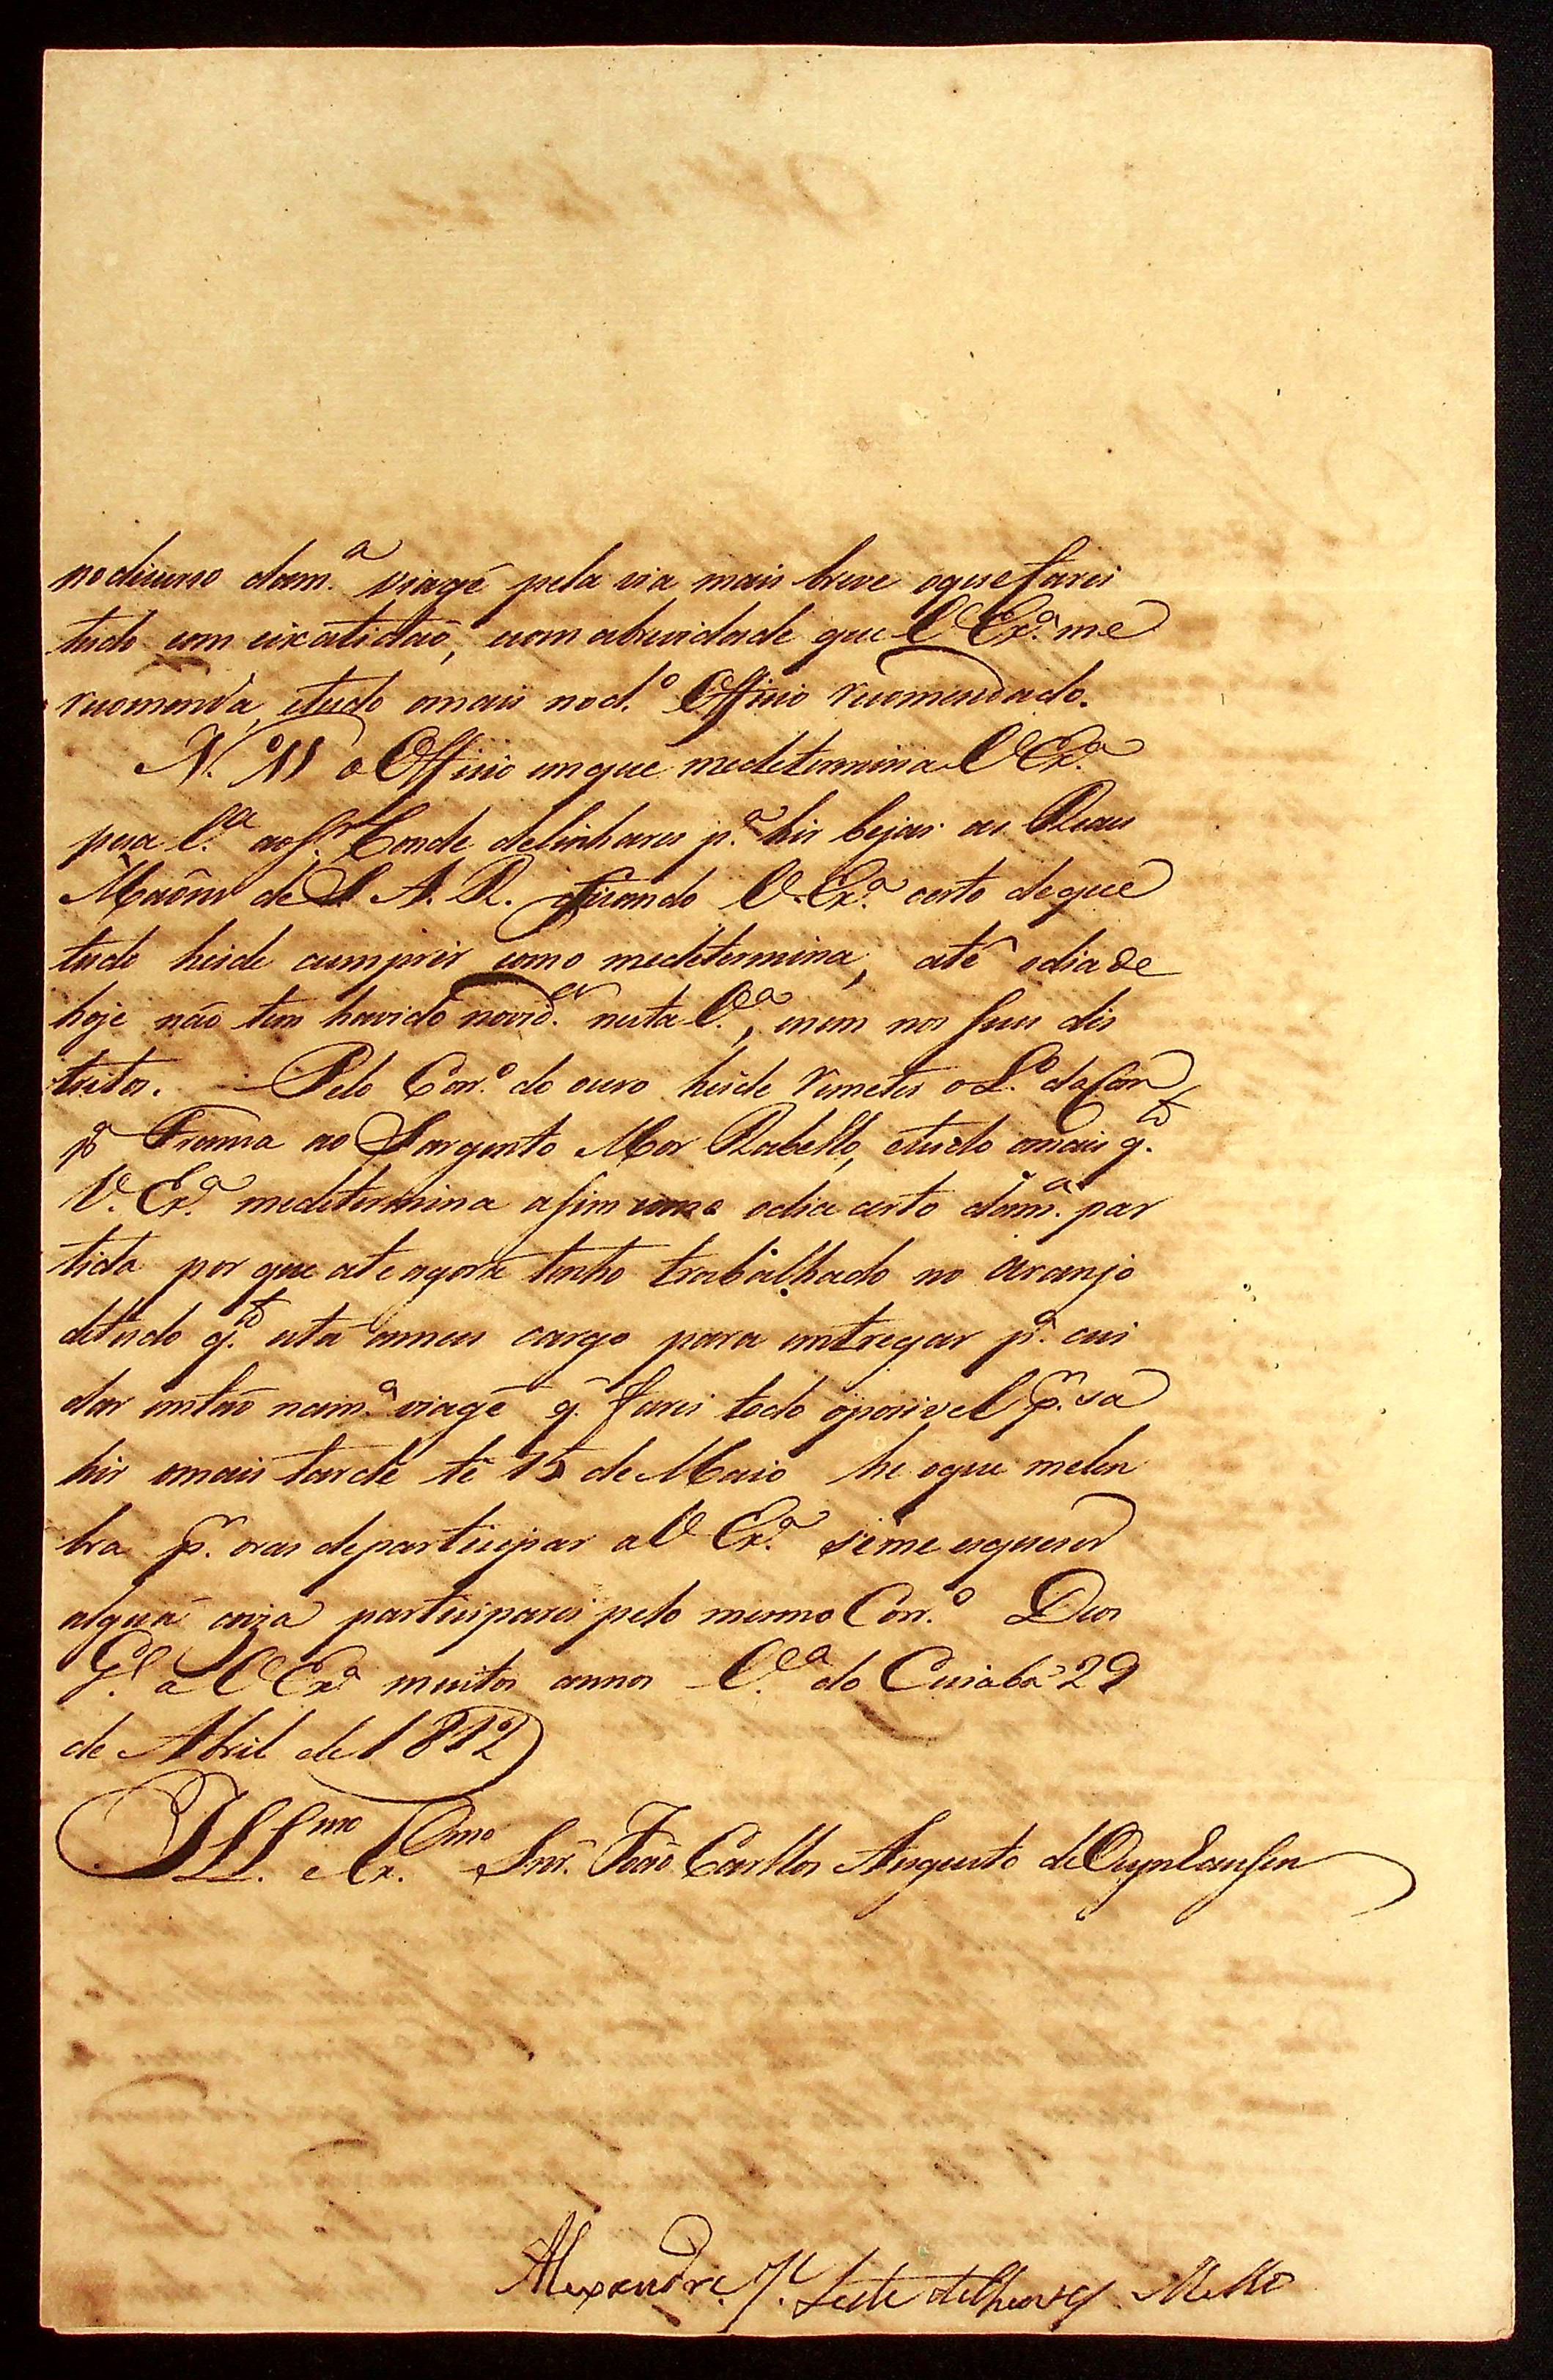 nodicurso dam.ª viagẽ pela via mais breve oquefarei
tudo com eixatidaõ, ecom abrevidade que VExª. me
recomenda, etudo omais nod.º Officio recomendado.
N.º 11 o Officio emque medetermina VExª.
pesa l.ça ao Sr. Conde delinhares p.ª hir bejar as Reaes
Maõns de S A. R. ficando V.Exª. certo deque
tudo heide cumprir como medetermina, até odia de
hoje não tem havido novid.e nesta V.ª, enem nos seus dis
tritos. Pelo Corr.º do ouro heide remeter o L.º da Con
p.ª Franca ao Sargento Mor Rabello, etudo omais q.to
V. Exª. medetermina asim como odia certo dam.ª par
tida por que ate agora tenho trabalhado no aranjo
detudo q.to esta ameu cargo para entregar p.ª cui
dar entaõ nam.ª viagẽ q. farei todo oposivel p.r sa
hir omais tarde té 15 de Maio he oque melem
bra p.r oras departecipar aV Exª. seme esquecer
alguã coiza participarei pelo mesmo Corr.º Deos
G.e a VExª muitos annos V.ª do Cuiabá 29
de Abril de 1812
Ill.mo e Ex.mo Snr. João Carllos Augusto de Oeynhausen
Alexandre J. Leite de Chaves Mello